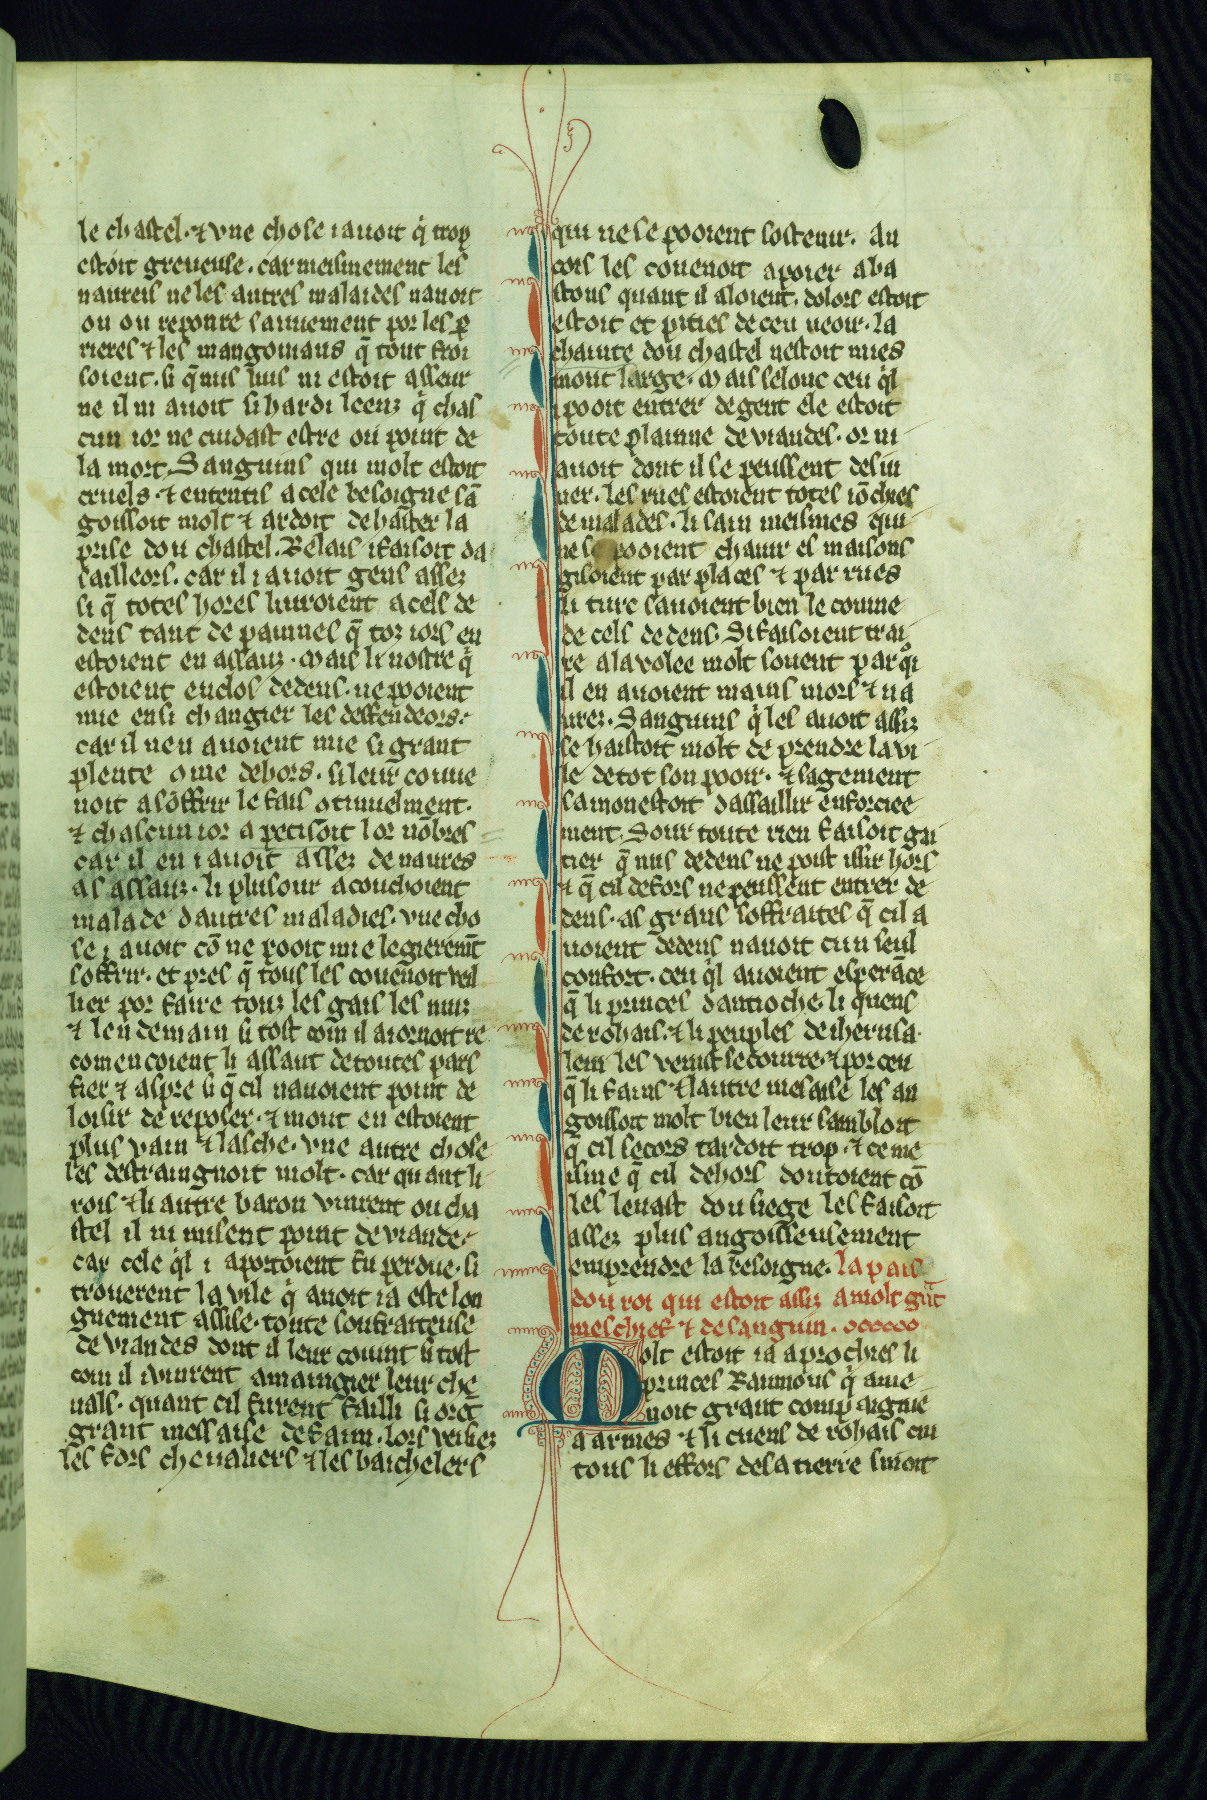 le chastel · ⁊ vne chose i auoit q̇ trop
estoit greueuse . car meismement les
naureis ne les autres malaides nauoit
ou ou reponre sauuement por les ꝑ
rieres ⁊ les mangoniaus q̄ tout froi
soient . si q̄ nus huis ni estoit asseur
ne il ni auoit si hardi leenz q̇ chas
cun ior ne cuidast estre ou point de
la mort . Sanguins qui molt estoit
cruels · ⁊ ententis a cele besoigne sā
goissoit molt ⁊ ardoit de haster la
prise dou chastel . Relais i faisoit da
sailleors . car il i auoit gens assez
si q̄ totes hores liuroient a cels de
dens tant de painnes q̄ toz iors en
estoient en assauz . Mais li nostre q̇
estoient enclos dedens . ne pooient
mie ensi changier les deffendeors ·
car il nen auoient mie si grant
plente ome dehors . si leur conue
noit a sōffrir le fais otinuelment .
⁊ chascun ior apeticoit lor nōbres
car il en i auoit assez de naures
as assauz . li plusour acouchoient
malade dautres maladies . vne cho
se i auoit cō ne pooit mie legieremt̄
soffrir . et pres q̄ tous les couenoit veil
lier por faire touz les gais les nuiz
⁊ lendemain si tost com il aiornoit re
comencoient li assaut de toutes pars
fier ⁊ aspre si q̄ cil nauoient point de
loisir de reposer · ⁊ mout en estoient
plus vain ⁊ lasche . vne autre chose
les destraingnoit molt . car quant li
rois ⁊ li autre baron vinrent ou cha
stel il ni misent point de viande ·
car cele q̇l i aportoient fu perdue . si
trouerent la vile q̇ auoit ia este lon
guement assise . toute soufraiteuse
de viandes dont il leur conuint si tost
com il i vinrent a maingier leur che
uals . quant cil furent failli si orēt
grant messaise de faim . lors veissiez
les fors cheualiers ⁊ les baichelers
qui ne se pooient sostenir . An
cois les couenoit apoier a ba
stons quant il aloient . dolors estoit
estoit et pities de ceu veoir . la
chainte dou chastel nestoit mies
mout large . Mais selonc ceu q̇l
i pooit entrer de gent ele estoit
toute plainne de viandes . or ni
auoit dont il se peussent desiu
ner . les rues estoient totes iōchies
de malades . li sain meismes qui
ne se pooient chauir es maisons
gisoient par places ⁊ par rues
li turc sauoient bien le couine
de cels dedens . Si faisoient trai
re a la volee molt souent par qͦi
il en auoient mains mors ⁊ na
urez . Sanguins q̇ les auoit assiz
se haistoit molt de prendre la vi
le de tot son pooir . ⁊ sagement
samonestoit dassaillir enforciee
ment . Sour toute rien faisoit gai
tier q̄ nus dedens ne poist issir hors
⁊ q̄ cil defors ne peussent entrer de
dens . as grans soffraites q̄ cil a
uoient dedens nauoit cun seul
confort . ceu q̇l auoient esperāce
q̄ li princes dantioche . li quens
de rohais . ⁊ li peuples de iherusa
lem les venist secourre . ⁊ por ceu
q̄ li fains ⁊ lautre mesaise les an
goissoit molt bien leur sambloit
q̄ cil secors tardoit trop . ⁊ ce me
isme q̄ cil dehors doutoient cō
les leuast dou siege les faisoit
assez plus angoisseusement
emprendre la besoigne . la pais
dou roi qui estoit assiz a molt gn̄t
meschief ⁊ de sanguin . oooooo
Molt estoit ia aprochies li
princes Raimons q̇ ame
noit grant compaignie
a armes ⁊ li cuens de rohais cui
tous li effors de sa tierre siuoit